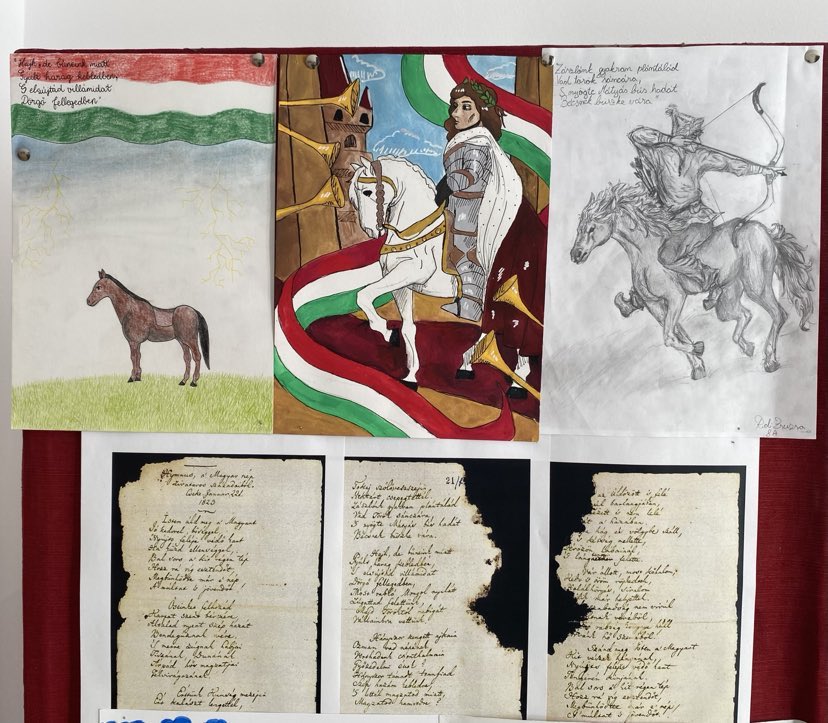 "Hajh, de bűneink miatt
Gyúlt harag kebledben,
S elsújtád villámidat
Dörgő fellegedben"
Zászlónk gyakran plántálád
Vad török sáncára,
S nyögte Mátyás bús hadát
Bécsnek büszke vára
8.A
Hymnus, a' Magyar nép
zivataros századaiból.
Cseke Januar. 22d.
1823.
Isten áldd meg a' Magyart
Jó kedvvel, bőséggel,
Nyújts feléje védő kart
Ha küzd ellenséggel;
Bal sors a' kit régen tép
Hozz rá víg esztendőt,
Megbűnhödte már e' nép
A' multat 's jövendőt!
Őseinket felhozád
Kárpát szent bérczére,
Általad nyert szép hazát
Bendegúznak vére,
'S merre zúgnak habjai
Tiszának, Dunának,
Árpád hős magzatjai
Felvirágzának.
Értünk Kunság mezein
Ért kalászt lengettél,
Tokaj szőlővesszein
Nektárt csepegtettél.
Zászlónk gyakran plántálád
Vad Török sánczára,
'S nyögte Mátyás bús hadát
Bécsnek büszke vára.
Hajh, de bűneink miatt
Gyúlt harag kebledben,
'S elsújtád villámidat
Dörgő fellegedben,
Most rabló Mongol nyilát
Zúgattad felettünk,
Majd Töröktől rabigát
Vállainkra vettünk.
Hányszor zengett ajkain
Ozman vad népének
Vert hadunk csonthalmain
Győzedelmi ének!
Hányszor támadt tenfiad
Szép hazám kebledre,
'S lettél magzatod miatt,
Magzatod hamvvedre?
Vár állott, most kőhalom,
Kedv 's öröm röpkedtek,
Szánd meg Isten a' Magyart
Kit vészek hányának,
Nyújts feléje védő kart
Tengerén kínjának.
Bal sors a' kit régen tép
Hozz rá víg esztendőt,
Megbűnhödte már e' nép
A' multat 's jövendőt!